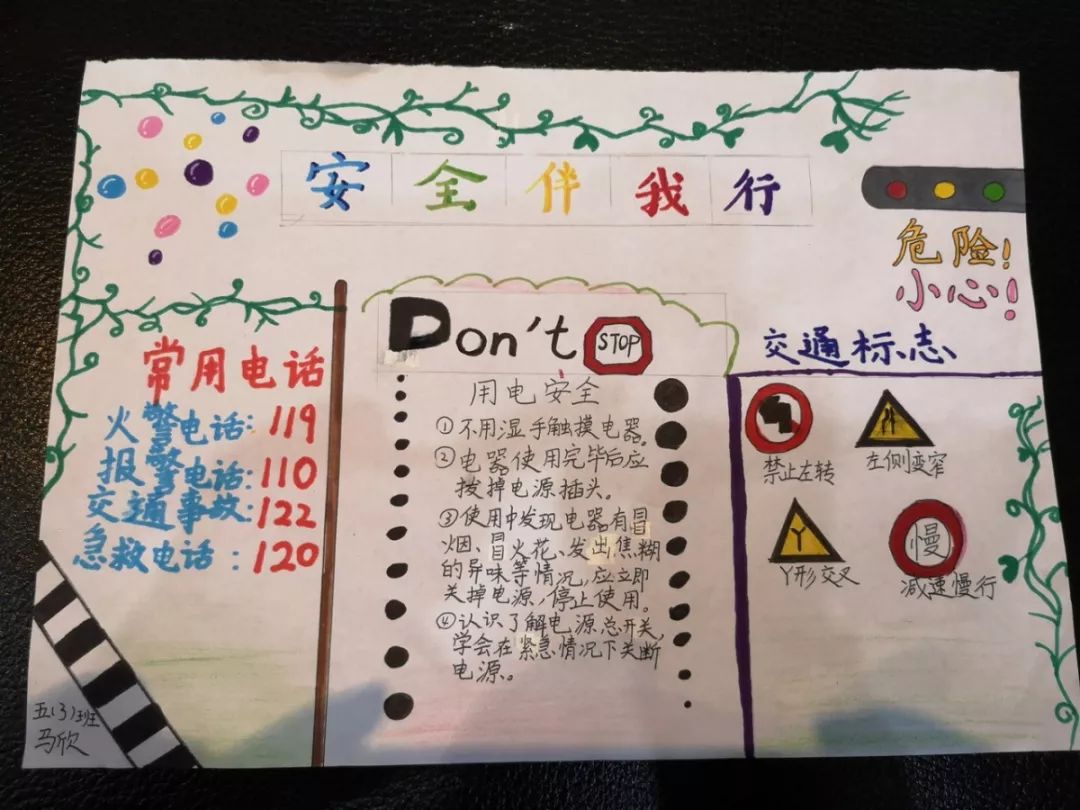 安全伴我行
危险!
小心!
常用电话
火警电话:119
报警电话:110
交通事故:122
急救电话:120
五(3)班
马欣
Don't STOP
用电安全
①不用湿手触摸电器。
②电器使用完毕后应
拨掉电源插头。
③使用中发现电器有冒
烟、冒火花、发出焦糊
的异味等情况,应立即
关掉电源,停止使用。
④认识了解电源总开关,
学会在紧急情况下关断
电源。
交通标志
禁止左转
左侧变窄
Y形交叉
慢
减速慢行